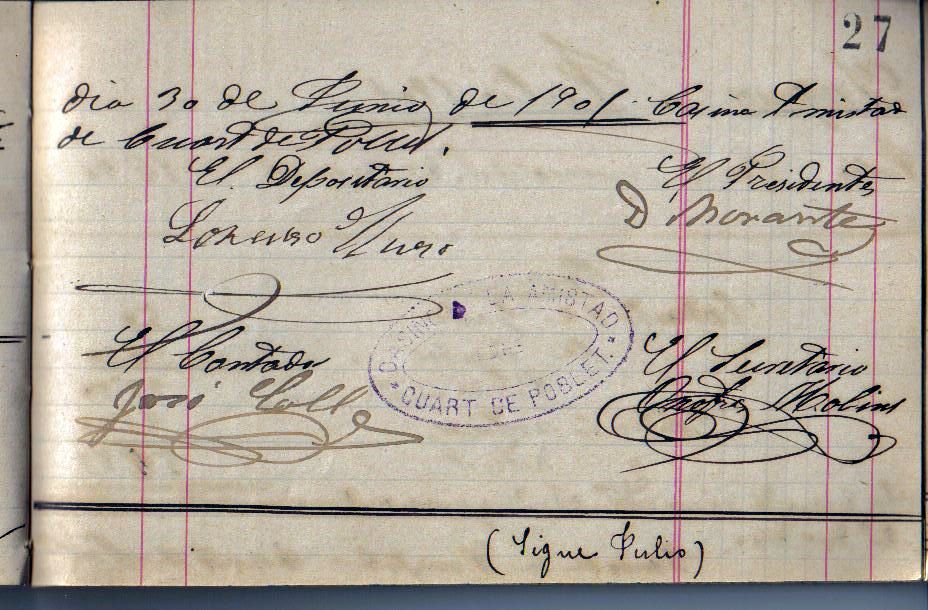 27
dia 30 de Junio de 1901. Casino Amistad
de Cuart de Poblet.
El Depositario
El Presidente
Lorenzo
D Morante
CASINO LA AMISTAD
CUART DE POBLET.
El Contador
El Secretario
José Coll
Onofre Molins
(Sigue Julio)